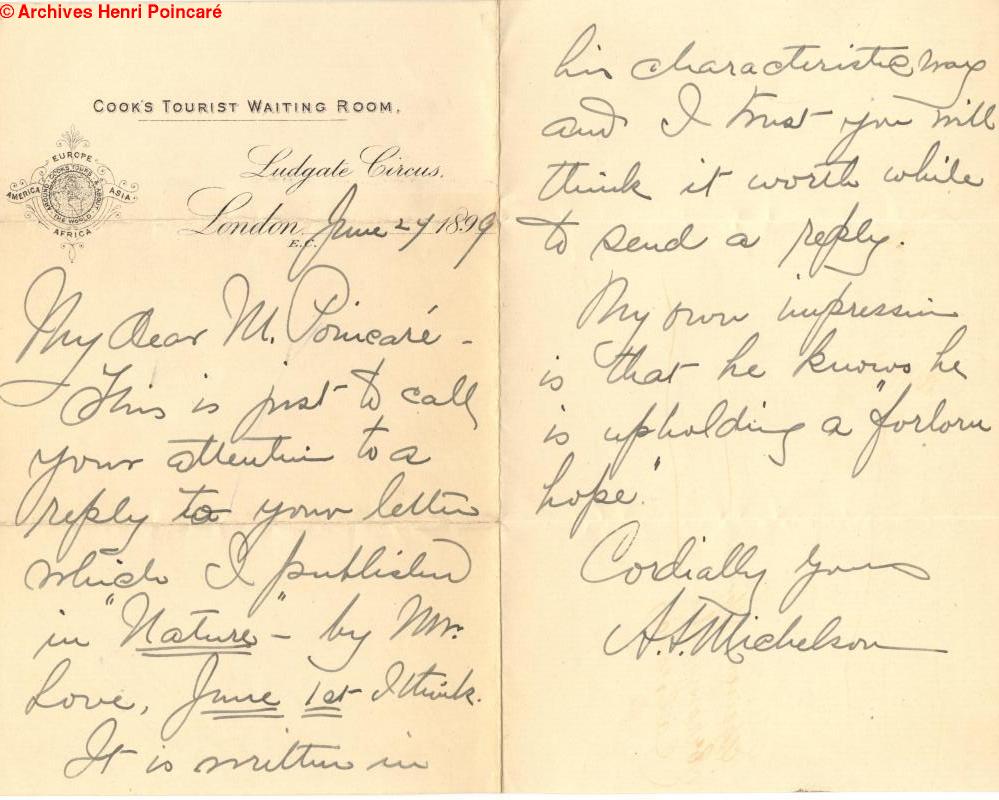 © Archives Henri Poincaré
COOK'S TOURIST WAITING ROOM.
EUROPE
AMERICA
ASIA
AFRICA
COOK'S TOURS
AROUND THE WORLD
Ludgate Circus,
London, June 27 1899
E.C.
My dear M. Poincaré -
This is just to call
your attention to a
reply to your letter
which I published
in "Nature" - by Mr.
Love, June 1st I think.
It is written in
his characteristic way
and I trust you will
think it worth while
to send a reply.
My own impression
is that he knows he
is upholding a "forlorn
hope."
Cordially yours
A.A. Michelson